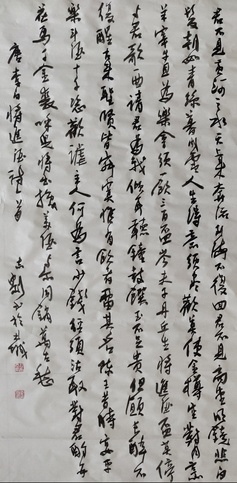 君不見黃河之水天上來奔流到海不復回君不見高堂明鏡悲白
髮朝如青絲暮成雪人生得意須盡歡莫使金樽空對月烹
羊宰牛且為樂會須一飲三百盃岑夫子丹丘生將進酒盃莫停
與君歌一曲請君為我傾耳聽鐘鼓饌玉不足貴但願長醉不
復醒古來聖賢皆寂寞惟有飲者留其名陳王昔時宴平
樂斗酒十千恣歡謔主人何為言少錢徑須沽取對君酌五
花馬千金裘呼兒將出換美酒與爾同銷萬古愁
唐李白將進酒詩一首